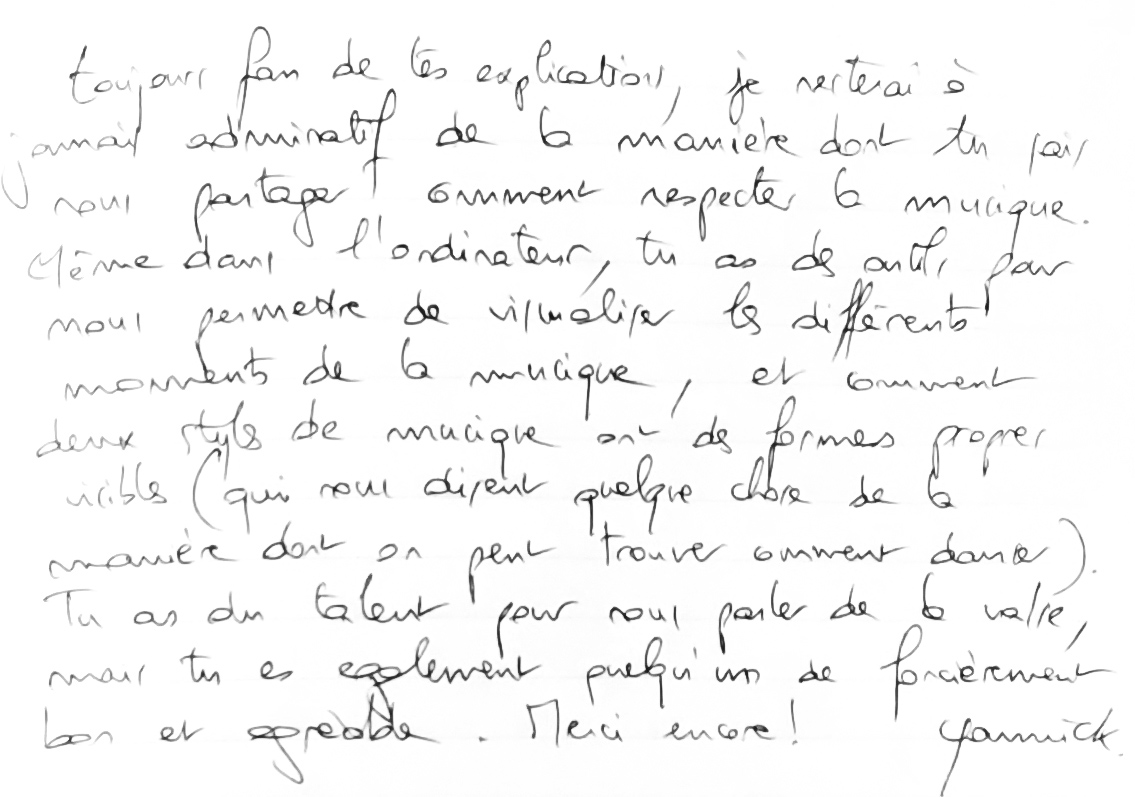 toujours fan de tes explications, je resterai à
jamais admiratif de la manière dont tu sais
nous partager comment respecter la musique.
Même dans l'ordinateur, tu as des outils pour
nous permettre de visualiser les différents
moments de la musique, et comment
deux styles de musique ont des formes propres
visibles (qui nous disent quelque chose de la
manière dont on peut trouver comment danser).
Tu as du talent pour nous parler de la valse,
mais tu es également quelqu'un de foncièrement
bon et agréable. Merci encore! Yannick.